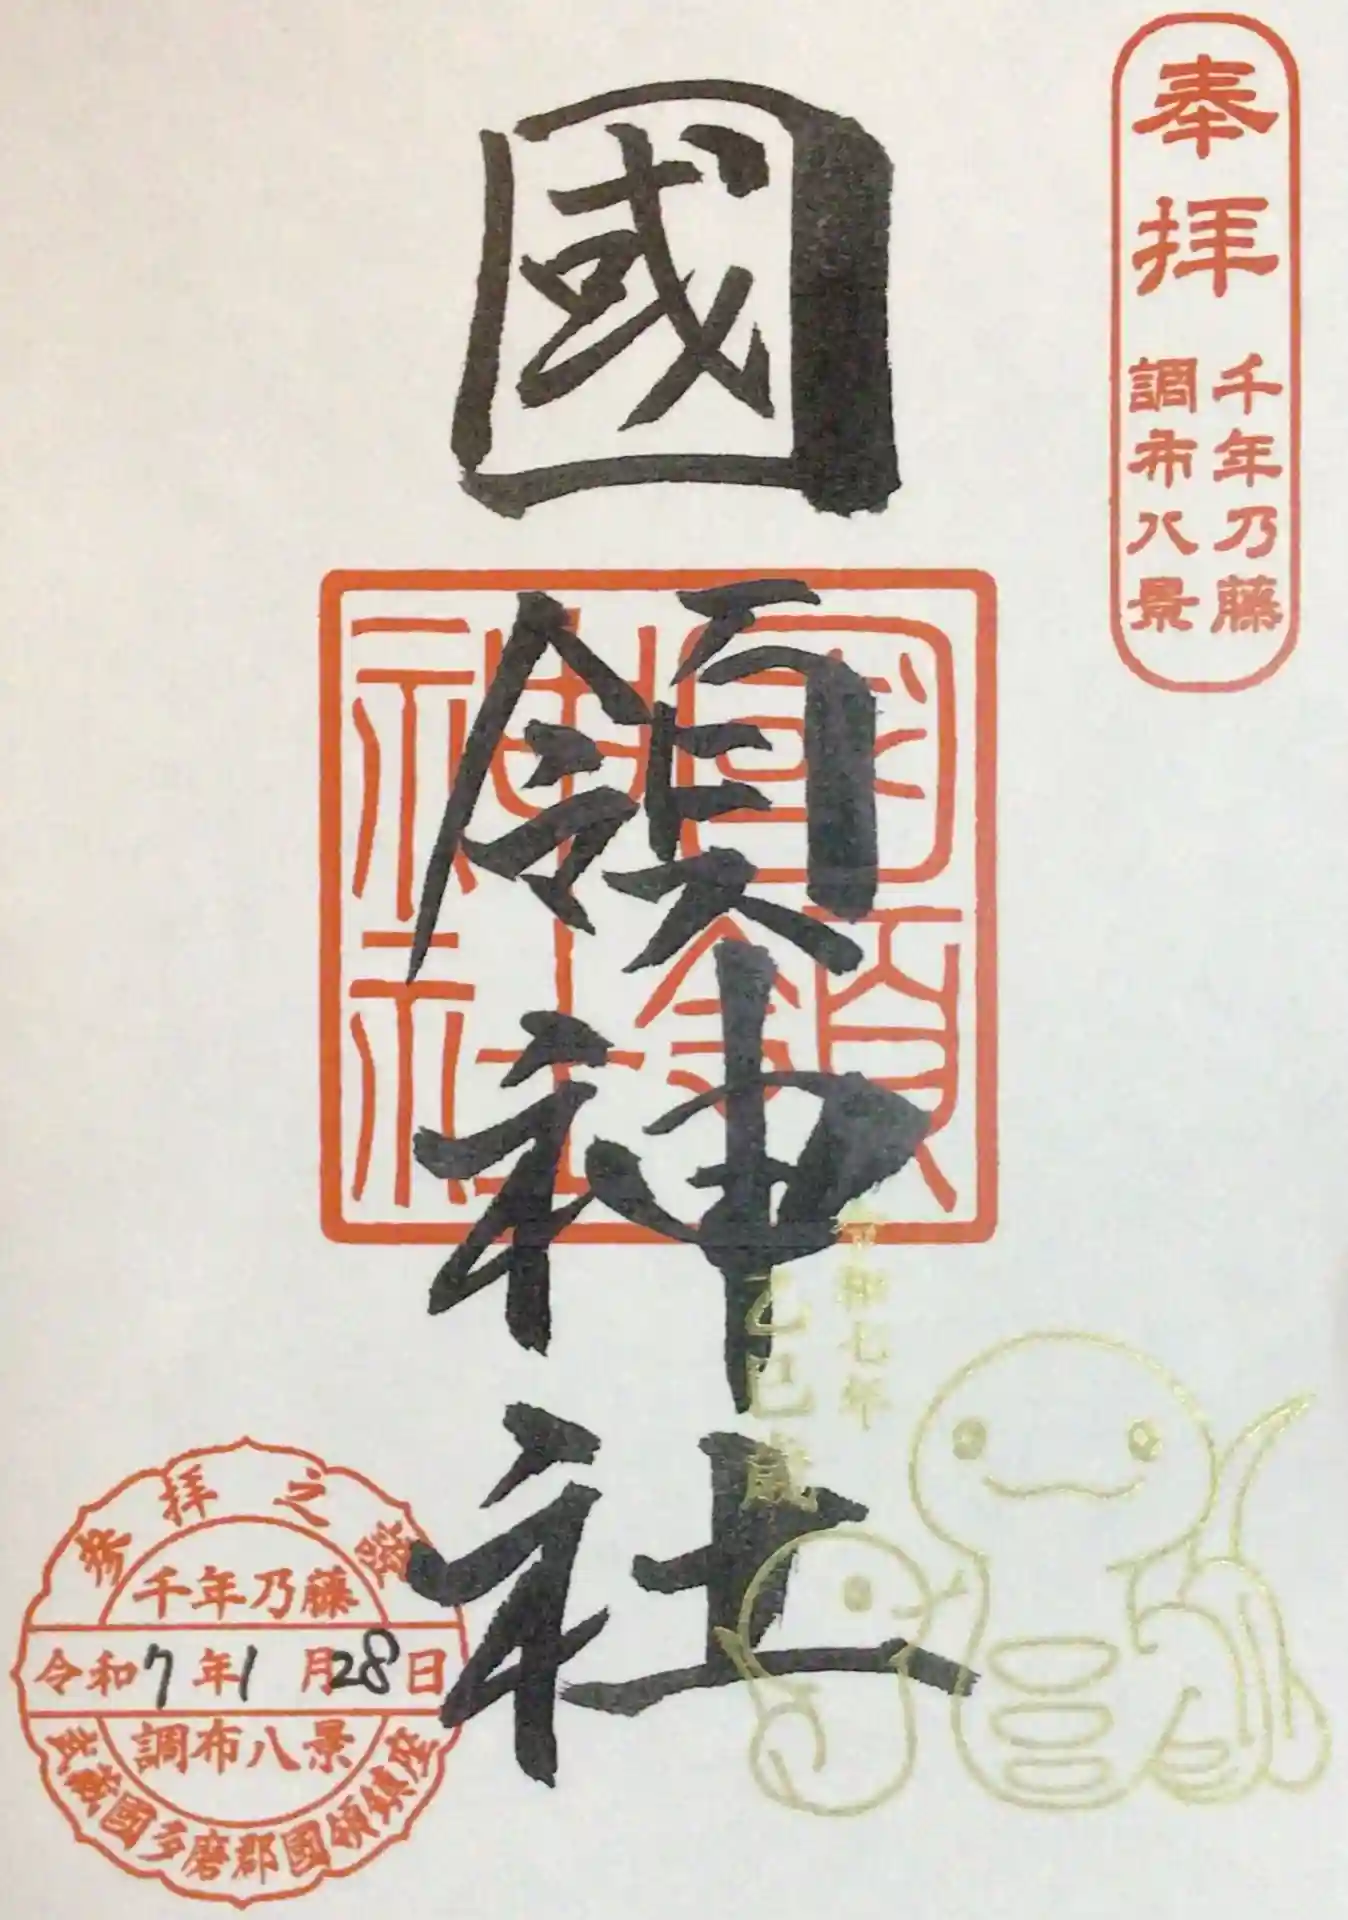 奉拝
千年乃藤
調布八景
國領神社
國領
神社
令和七年
乙巳歳
参拝之證
千年乃藤
令和7年1月28日
調布八景
武蔵國多磨郡國領鎮座